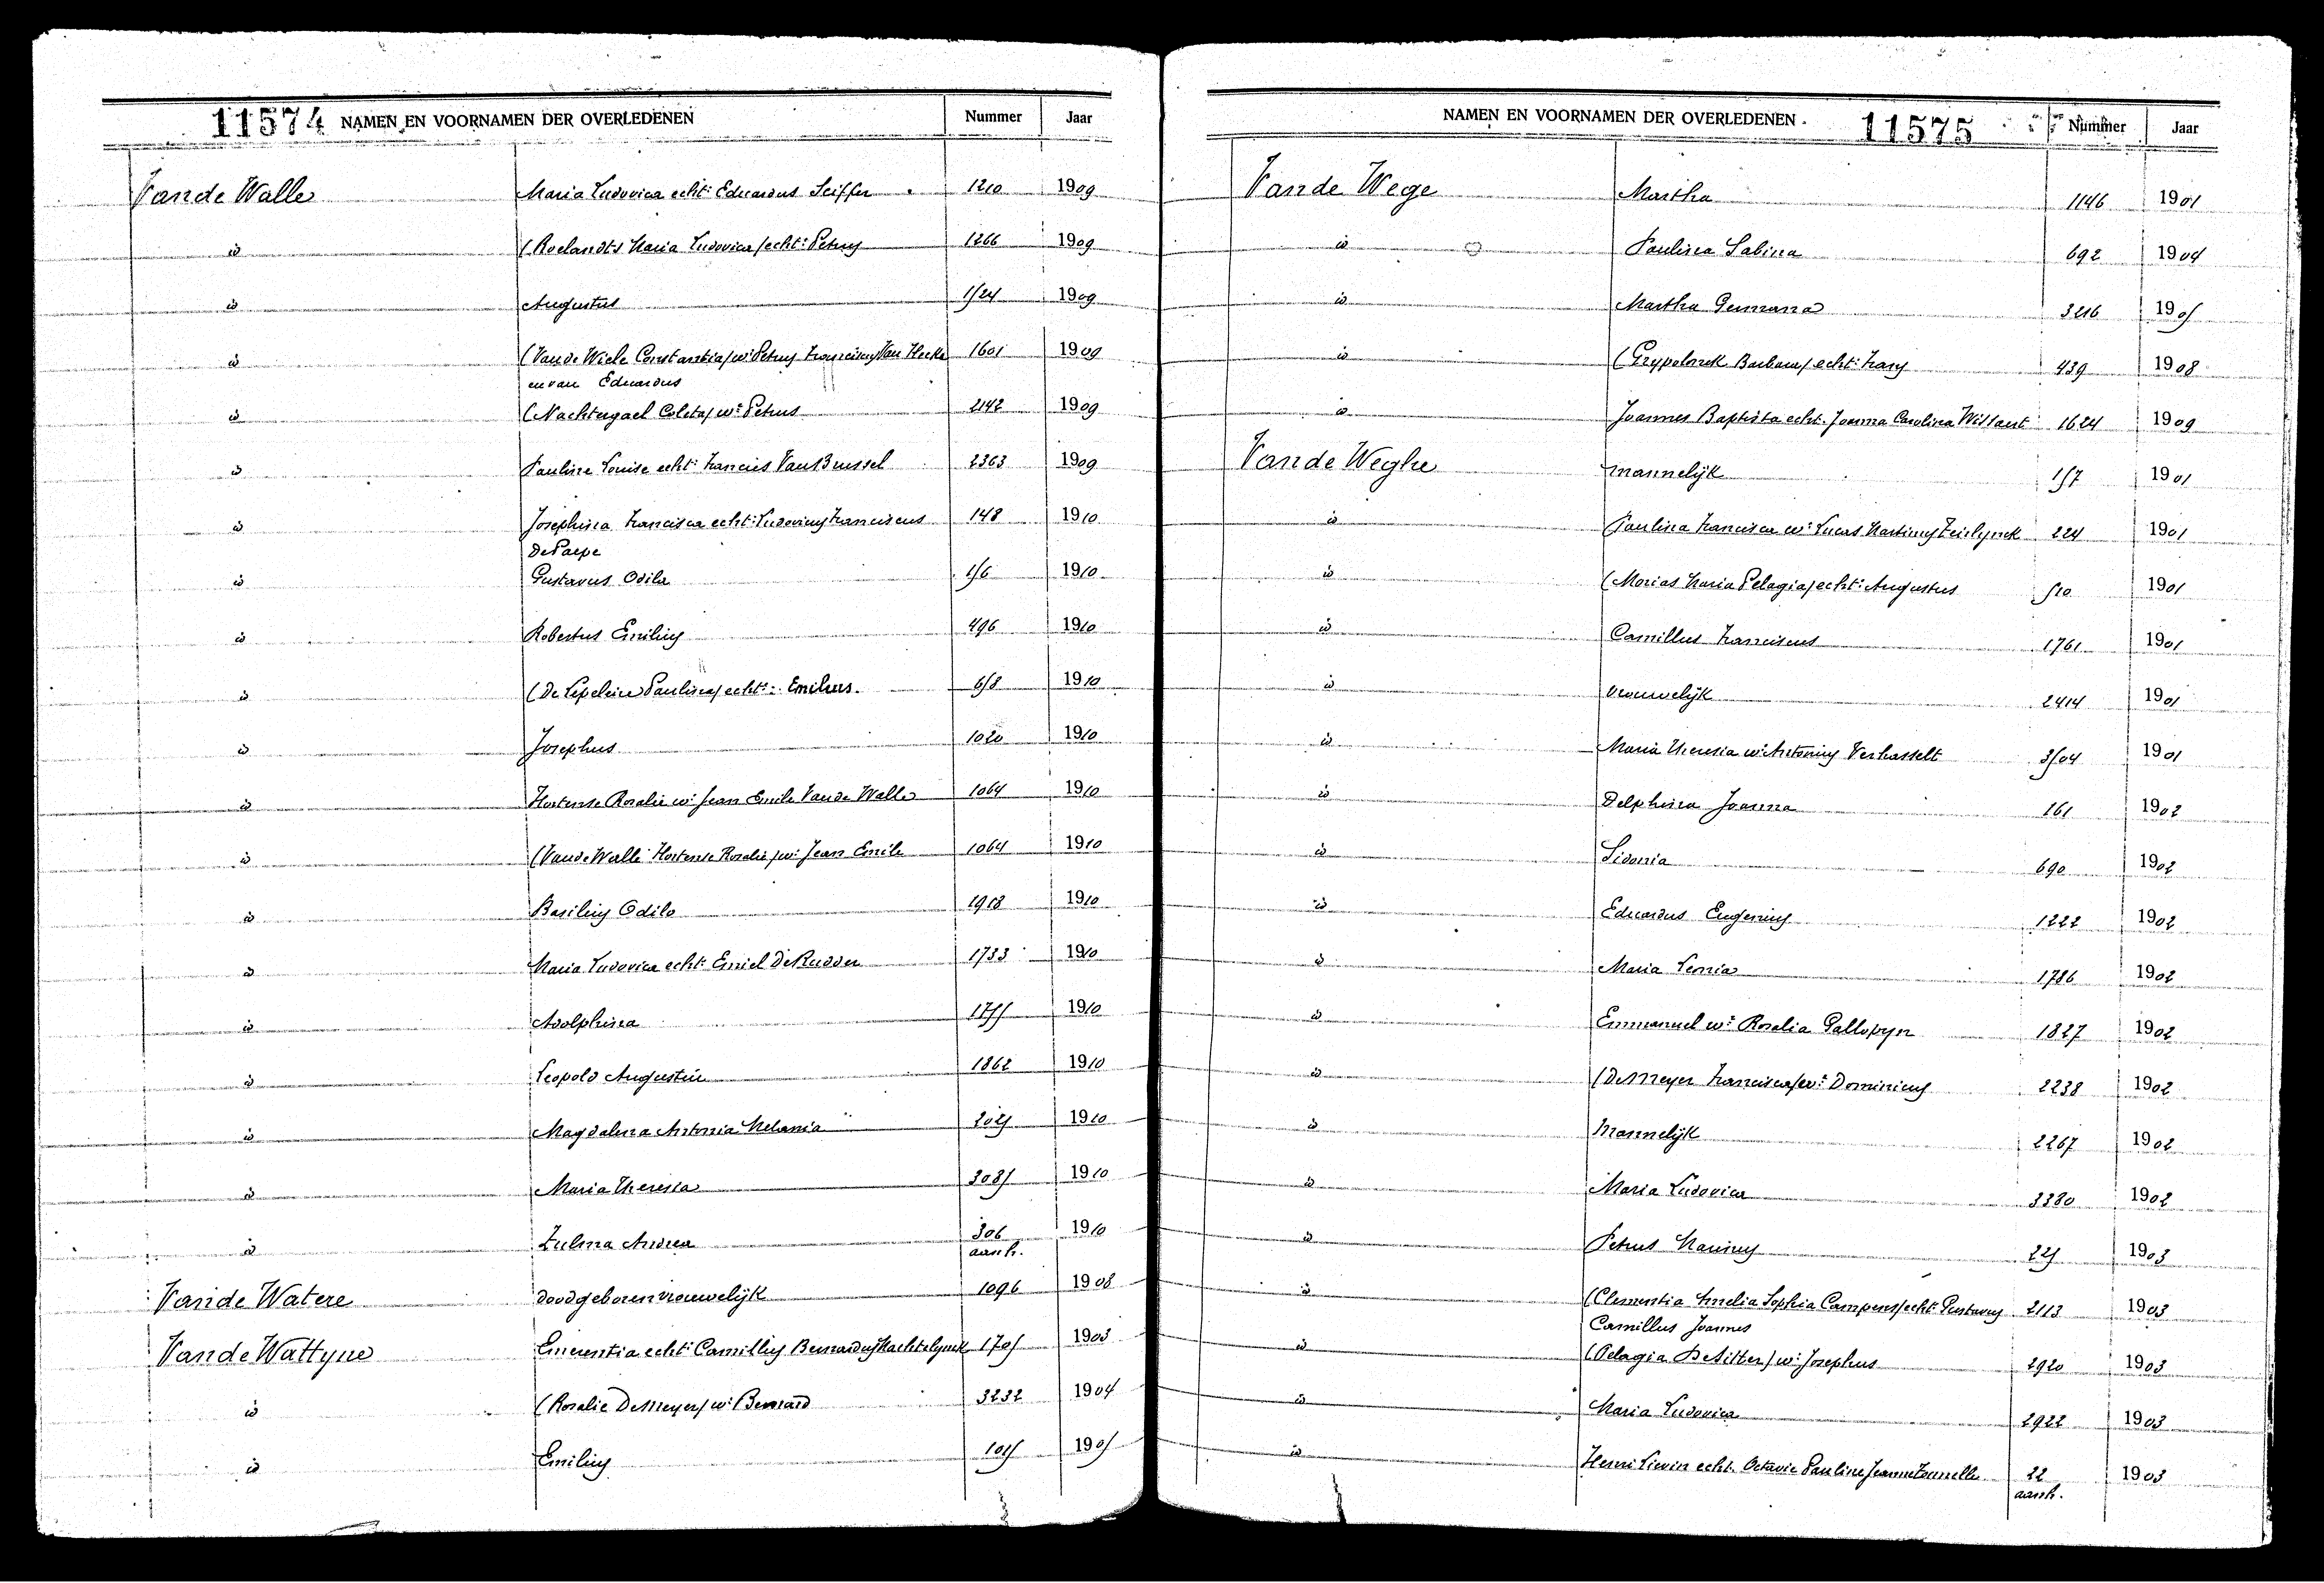 11574 NAMEN EN VOORNAMEN DER OVERLEDENEN Nummer Jaar
Van de Walle Maria Ludovica echt: Eduardus Seiffer 1210 1909
id (Roelandts Maria Ludovica) echt: Petrus 1266 1909
id Augustus 1524 1909
id (Van de Wiele Constantia) we Petrus Franciscus Van Hecke 1601 1909
en van Eduardus
id (Nachtergael Coleta) we Petrus 2142 1909
id Pauline Louise echt: Francies Van Brussel 2363 1909
id Josephina Francisca echt: Ludovicus Franciscus 148 1910
De Paepe
id Gustavus Odila 156 1910
id Robertus Emilius 496 1910
id (De Lepeleire Paulina) echt: Emilius. 658 1910
id Josephus 1020 1910
id Hortense Rosalie we Jean Emile Van de Walle 1064 1910
id (Van de Walle Hortense Rosalie) we Jean Emile 1064 1910
id Basilius Odilo 1918 1910
id Maria Ludovica echt: Emiel De Rudder 1733 1910
id Adolphina 1755 1910
id Leopold Augustin 1862 1910
id Magdalena Antonia Melania 2025 1910
id Maria Theresia 3085 1910
id Zulma Andrea 306 1910
aanh.
Van de Watere doodgeboren vrouwelijk 1096 1908
Van de Wattyne Emerentia echt: Camillus Bernardus Machtelynck 1705 1903
id (Rosalie De Meyer) we Bernard 3232 1904
id Emilius 1015 1905
NAMEN EN VOORNAMEN DER OVERLEDENEN 11575 Nummer Jaar
Van de Wege Martha 1146 1901
id Paulina Sabina 692 1904
id Martha Germana 3216 1905
id (Grypolnck Barbara) echt: Frans 439 1908
id Joannes Baptista echt. Joanna Carolina Wittant 1624 1909
Van de Weghe mannelijk 157 1901
id Paulina Francisca we Lucas Martinus Teirlynck 224 1901
id (Morias Maria Pelagia) echt: Augustus 510 1901
id Camillus Franciscus 1761 1901
id vrouwelijk 2414 1901
id Maria Theresia we Antonius Verhasselt 3504 1901
id Delphina Joanna 161 1902
id Sidonia 690 1902
id Eduardus Eugenius 1222 1902
id Maria Leonia 1786 1902
id Emmanuel we Rosalia Gallopyn 1827 1902
id (De Meyer Francisca) we Dominicus 2238 1902
id Mannelijk 2267 1902
id Maria Ludovica 3380 1902
id Petrus Marinus 225 1903
id (Clementia Amelia Sophia Campens) echt: Gustavus 2113 1903
Camillus Joannes
id (Pelagia De Sitter) we Josephus 2920 1903
id Maria Ludovica 2922 1903
id Henri Lievin echt. Octavie Pauline Jeanne 22 1903
aanh.